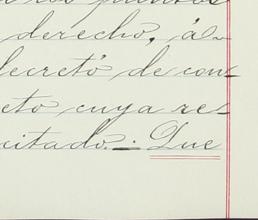 derecho, á-
decretó de con-
eto cuya re-
citado.- Que